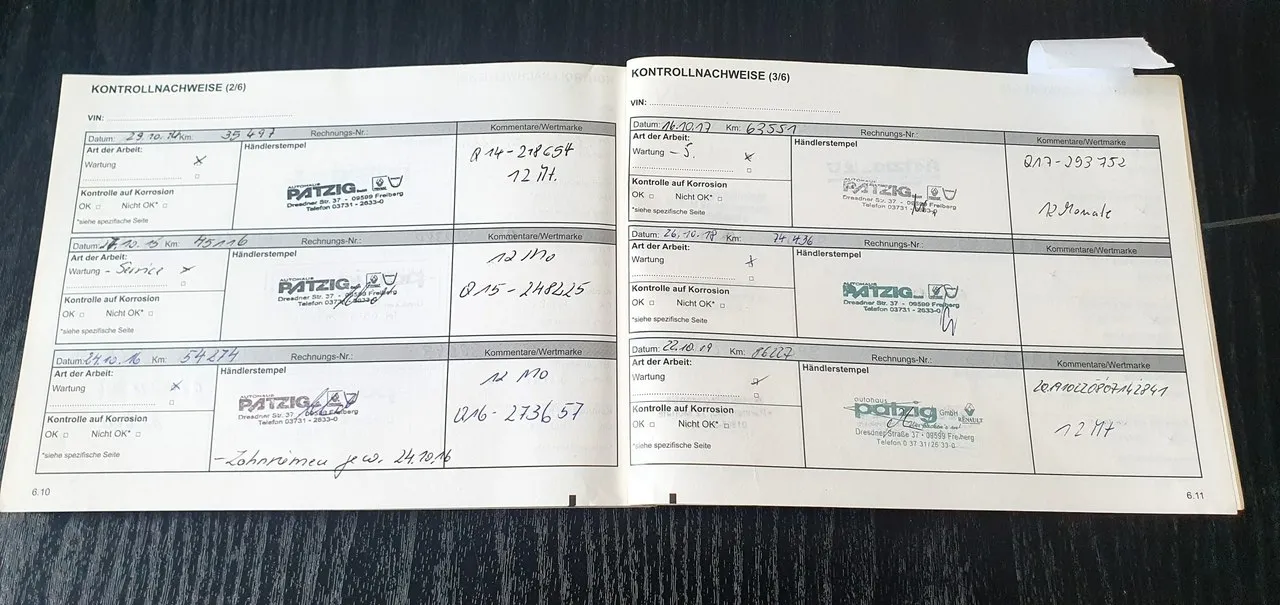 KONTROLLNACHWEISE (2/6)
VIN:
Datum: 29.10.14 Km: 35 497 Rechnungs-Nr.: Kommentare/Wertmarke
Art der Arbeit: Händlerstempel
Wartung x
Q14-218654
12 Mt.
Kontrolle auf Korrosion
OK □ Nicht OK* □
*siehe spezifische Seite
AUTOHAUS
PÄTZIG
RENAULT
Dresdner Str. 37 - 09599 Freiberg
Telefon 03731 - 2633-0
Datum: 10.15 Km: 45116 Rechnungs-Nr.: Kommentare/Wertmarke
Art der Arbeit: Händlerstempel
Wartung - Service x
12 Mo
Q15-248225
Kontrolle auf Korrosion
OK □ Nicht OK* □
*siehe spezifische Seite
AUTOHAUS
PÄTZIG
Dresdner Str. 37 - 09599 Freiberg
Telefon 03731
Datum: 24.10.16 Km: 54274 Rechnungs-Nr.: Kommentare/Wertmarke
Art der Arbeit: Händlerstempel
Wartung x
12 Mo
Q16-273657
Kontrolle auf Korrosion
OK □ Nicht OK* □
*siehe spezifische Seite
AUTOHAUS
PÄTZIG
Dresdner Str. 37 Freiberg
Telefon 03731 - 2633-0
- Zahnriemen gew. 24.10.16
6.10
KONTROLLNACHWEISE (3/6)
VIN:
Datum: 16.10.17 Km: 63551 Rechnungs-Nr.: Kommentare/Wertmarke
Art der Arbeit: Händlerstempel
Wartung - S. x
Q17-293752
12 Monate
Kontrolle auf Korrosion
OK □ Nicht OK* □
*siehe spezifische Seite
AUTOHAUS
PÄTZIG
Dresdner Str. 37 - 09599 Freiberg
Telefon 03731
Datum: 26.10.18 Km: 74 436 Rechnungs-Nr.: Kommentare/Wertmarke
Art der Arbeit: Händlerstempel
Wartung x
Kontrolle auf Korrosion
OK □ Nicht OK* □
*siehe spezifische Seite
AUTOHAUS
PÄTZIG
Dresdner Str. 37 - 09599 Freiberg
Telefon 03731 - 2633-0
Datum: 22.10.19 Km: 86227 Rechnungs-Nr.: Kommentare/Wertmarke
Art der Arbeit: Händlerstempel
Wartung x
12 Mt
Kontrolle auf Korrosion
OK □ Nicht OK* □
*siehe spezifische Seite
autohaus
pätzig GmbH
RENAULT
Dresdner Straße 37 · 09599 Freiberg
Telefon 0 37 31/26 33-0
6.11